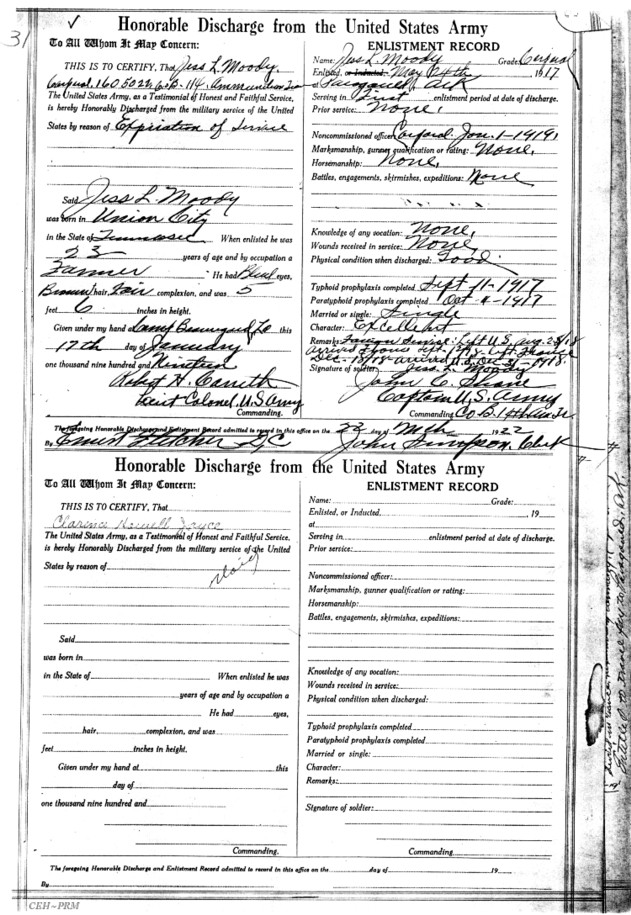 31
Honorable Discharge from the United States Army
To All Whom It May Concern:
THIS IS TO CERTIFY, That Jess L. Moody
Corporal, 1605022, Co. B. 114, Ammunition
The United States Army, as a Testimonial of Honest and Faithful Service,
is hereby Honorably Discharged from the military service of the United
States by reason of Expiration of Service
Said Jess L. Moody
was born in Union City
in the State of Tennessee When enlisted he was
23 years of age and by occupation a
Farmer He had Blue eyes,
Brown hair, Fair complexion, and was 5
feet 6 inches in height.
Given under my hand Camp Beauregard La this
17th day of January
one thousand nine hundred and Nineteen
Robert H.
Lieut Colonel, U.S. Army
Commanding.
ENLISTMENT RECORD
Name: Jess L. Moody Grade: Corporal
Enlisted, or Inducted, May 24th 1917
at Paragould, Ark
Serving in First enlistment period at date of discharge.
Prior service: None,
Noncommissioned officer: Corporal. Jan. 1-1919,
Marksmanship, gunner qualification or rating: None,
Horsemanship: None,
Battles, engagements, skirmishes, expeditions: None
Knowledge of any vocation: None,
Wounds received in service: None
Physical condition when discharged: Good
Typhoid prophylaxis completed Sept 11-1917
Paratyphoid prophylaxis completed Oct 4-1917
Married or single: Single
Character: Excellent
Remarks: Foreign Service: Left U.S. Aug.
Signature of soldier: Jess L. Moody
John C. Shane
Captain U.S. Army
Commanding Co B.
The foregoing Honorable Discharge and Enlistment Record admitted to record in this office on the 22 day of Mch 1922
By Ernest Fletcher D.C John Simpson, Clerk
Honorable Discharge from the United States Army
To All Whom It May Concern:
THIS IS TO CERTIFY, That
Clarence Howell Joyce
The United States Army, as a Testimonial of Honest and Faithful Service,
is hereby Honorably Discharged from the military service of the United
States by reason of
Void
Said
was born in
in the State of When enlisted he was
years of age and by occupation a
He had eyes,
hair, complexion, and was
feet inches in height.
Given under my hand at this
day of
one thousand nine hundred and
Commanding.
ENLISTMENT RECORD
Name: Grade:
Enlisted, or Inducted, 19
at
Serving in enlistment period at date of discharge.
Prior service:
Noncommissioned officer:
Marksmanship, gunner qualification or rating:
Horsemanship:
Battles, engagements, skirmishes, expeditions:
Knowledge of any vocation:
Wounds received in service:
Physical condition when discharged:
Typhoid prophylaxis completed
Paratyphoid prophylaxis completed
Married or single:
Character:
Remarks:
Signature of soldier:
Commanding
The foregoing Honorable Discharge and Enlistment Record admitted to record in this office on the day of 19
By
CEH-PRM